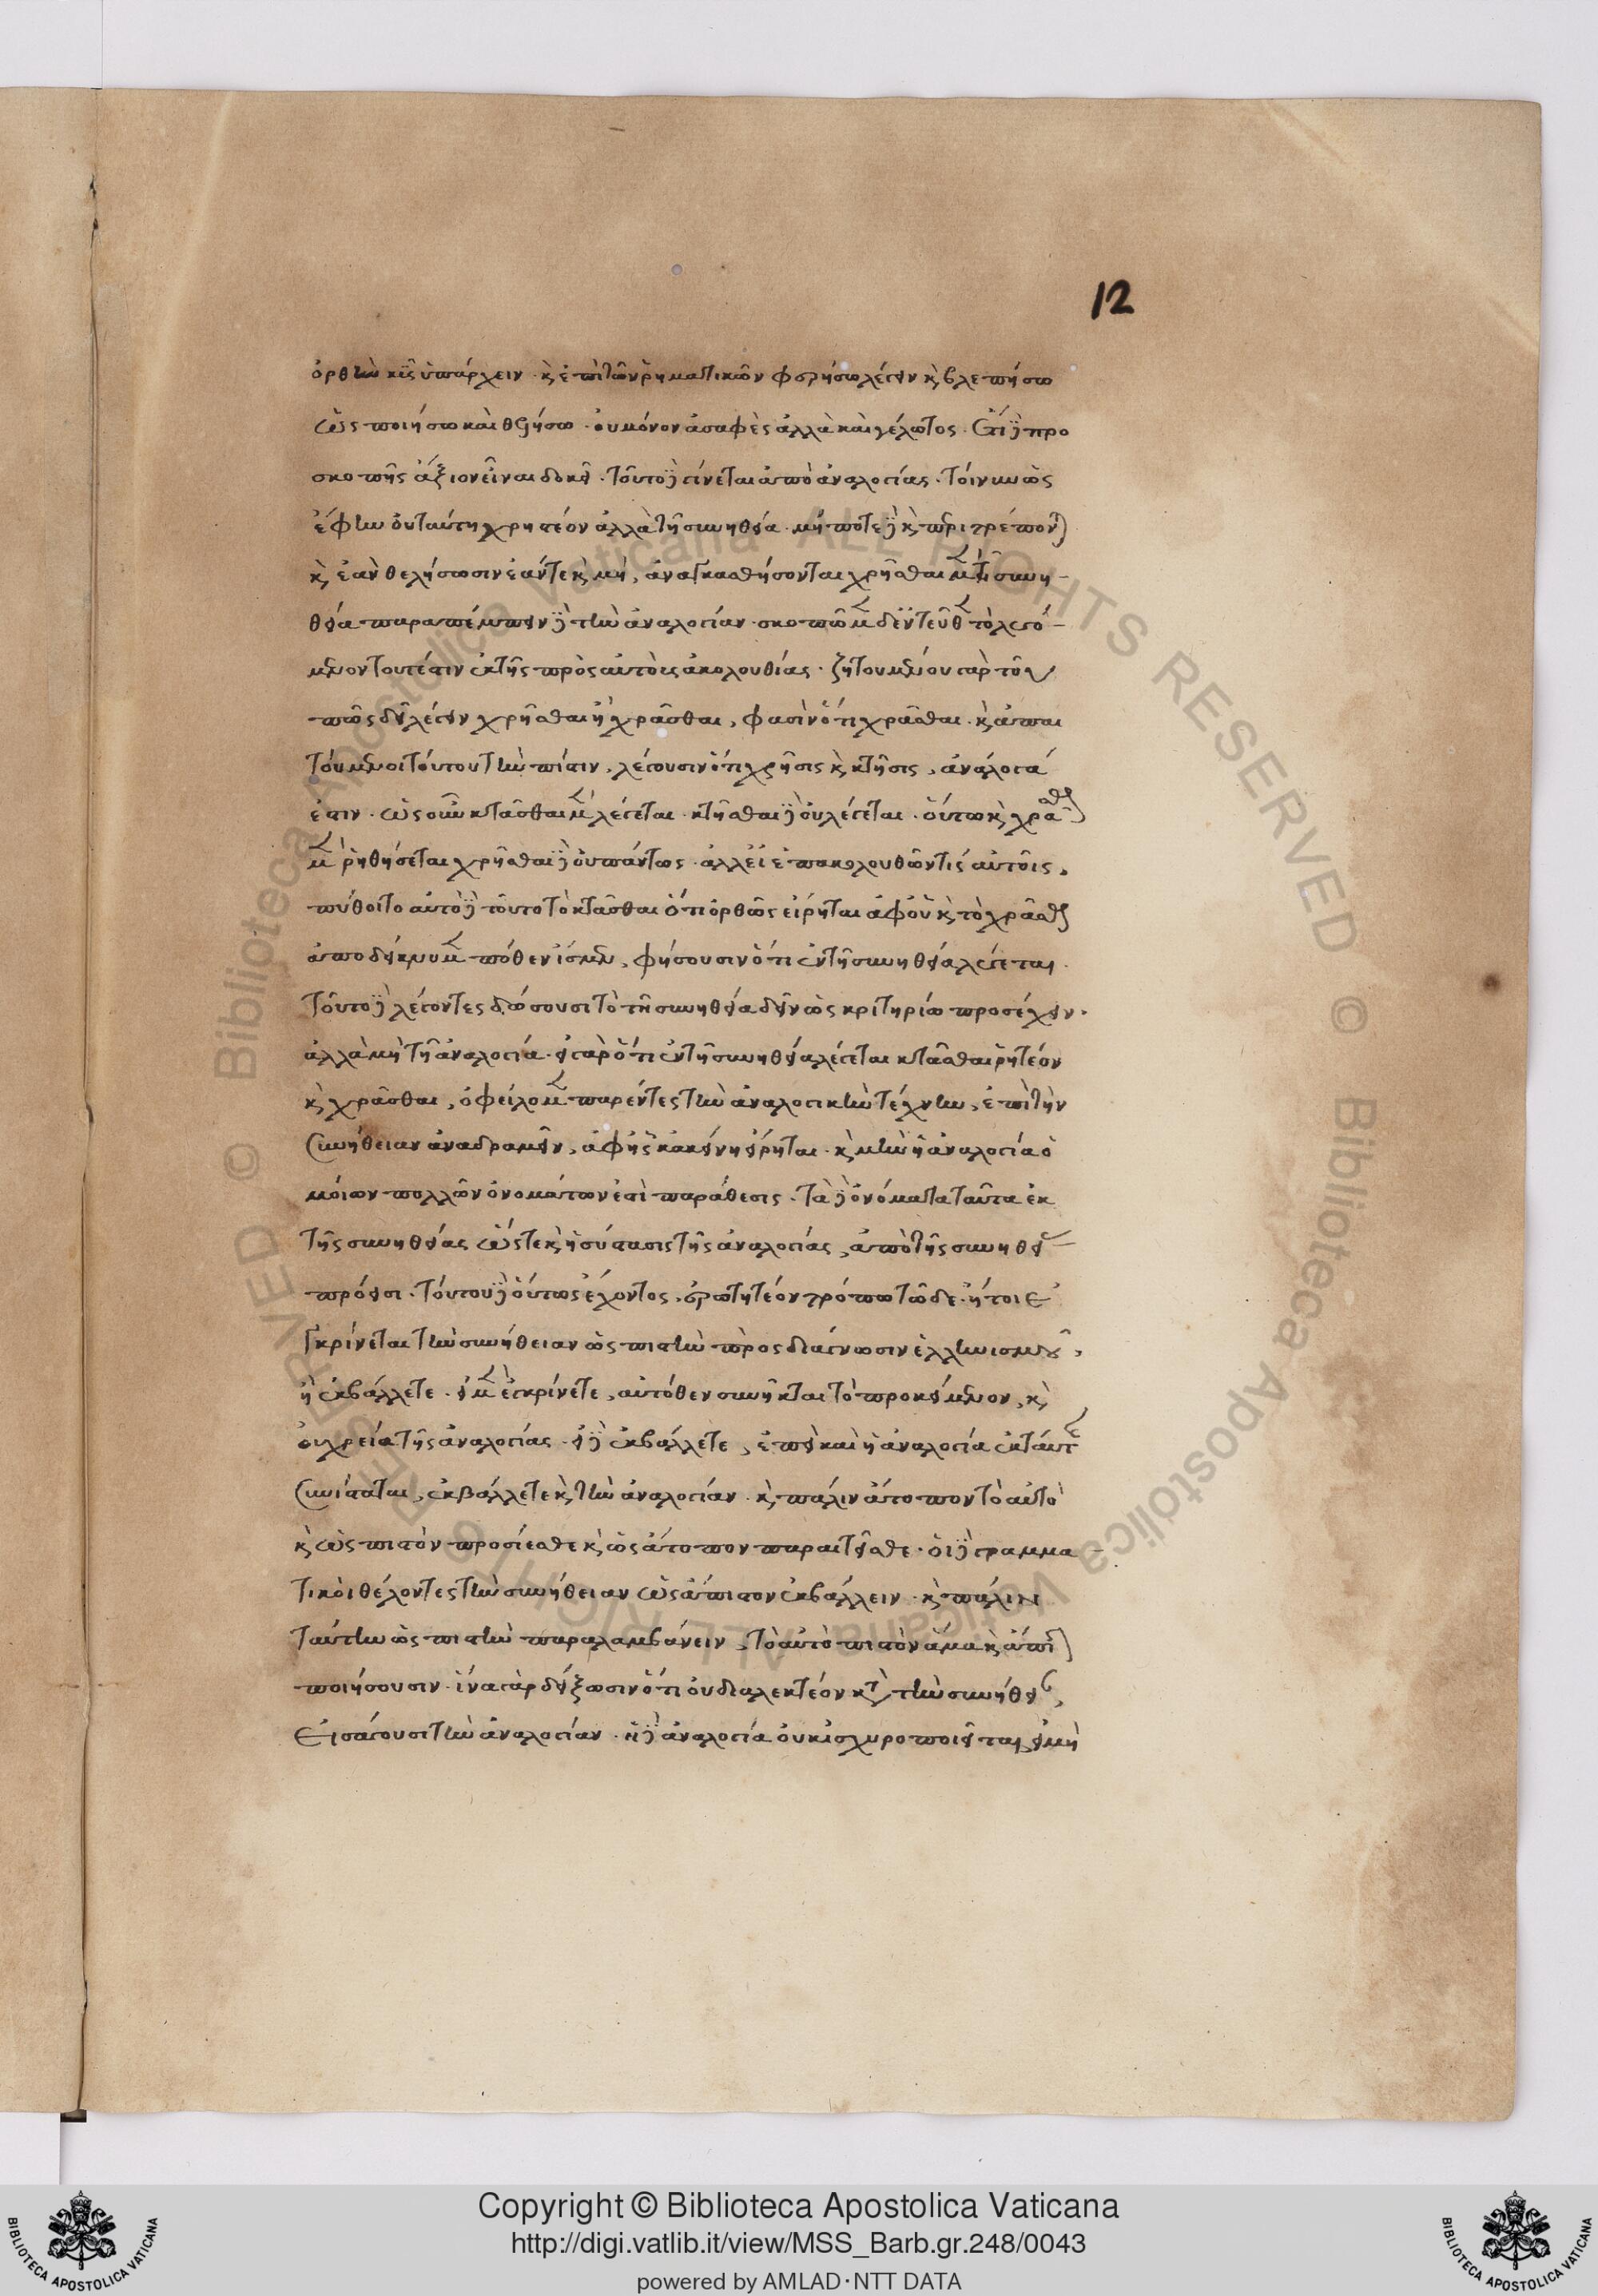 12
ὀρθὴν κεῖς ὑπάρχειν · καὶ ἐπὶ τῶν ῥηματικῶν φερήσω λέγειν καὶ βλεπήσω
ὡς ποιήσω καὶ θελήσω · οὐ μόνον ἀσαφὲς ἀλλὰ καὶ γέλωτος · ἔτι δὲ προ
σκοπῆς ἄξιον εἶναι δοκεῖ · τοῦτο δὲ γίνεται ἀπὸ ἀναλογίας · τοίνυν ὡς
ἔφην οὐ ταύτῃ χρηστέον ἀλλὰ τῇ συνηθεία · μή ποτε δὲ καὶ περιτρέπονται
καὶ ἐὰν θελήσωσιν ἐάν τε καὶ μή, ἀναγκασθήσονται χρῆσθαι μὲν τῇ συνη-
θεία παραπέμπειν δὲ τὴν ἀναλογίαν · σκοπῶμεν δὲ ἐντεῦθεν τὸ λεγό-
μενον τουτέστιν ἐκ τῆς πρὸς αὐτοὺς ἀκολουθίας · ζητουμένου γὰρ τοῦ
πῶς δεῖ λέγειν χρῆσθαι ἢ χρᾶσθαι, φασὶν ὅτι χρᾶσθαι · καὶ ἀπαι
τούμενοι τούτου τὴν πίστιν, λέγουσιν ὅτι χρῆσις καὶ κτῆσις, ἀνάλογά
ἐστιν · ὡς οὖν κτᾶσθαι μὲν λέγεται · κτῆσθαι δὲ οὐ λέγεται · οὕτω καὶ χρᾶσθαι
μὲν ῥηθήσεται χρῆσθαι δὲ οὐ πάντως · ἀλλ' εἰ ἐπακολουθῶν τις αὐτοῖς,
πύθοιτο αὐτὸ δὲ τοῦτο τὸ κτᾶσθαι ὅτι ὀρθῶς εἴρηται ἀφ' οὗ καὶ τὸ χρᾶσθαι
ἀποδείκνυμεν πόθεν ἴσμεν, φήσουσιν ὅτι ἐν τῇ συνηθεία λέγεται ·
τοῦτο δὲ λέγοντες δώσουσι τὸ τῇ συνηθεία δεῖν ὡς κριτηρίω προσέχειν ·
ἀλλὰ μὴ τῇ ἀναλογία · εἰ γὰρ ὅτι ἐν τῇ συνηθεία λέγεται κτᾶσθαι ῥητέον
καὶ χρᾶσθαι, ὀφείλομεν παρέντες τὴν ἀναλογικὴν τέχνην, ἐπὶ τὴν
συνήθειαν ἀναδραμεῖν, ἀφ' ἧς κἀκείνη εἴρηται · καὶ μὴν ἡ ἀναλογία ὁ
μοίων πολλῶν ὀνομάτων ἐστὶ παράθεσις · τὰ δὲ ὀνόματα ταῦτα ἐκ
τῆς συνηθείας ὥστε καὶ ἡ σύστασις τῆς ἀναλογίας, ἀπὸ τῆς συνηθείας
πρόεισι · τούτου δὲ οὕτως ἔχοντος, ἐρωτητέον τρόπω τῶδε · ἤτοι ἐ
γκρίνεται τὴν συνήθειαν ὡς πιστὴν πρὸς διάγνωσιν ἑλληνισμοῦ,
ἢ ἐκβάλλετε · εἰ μὲν ἐγκρίνετε, αὐτόθεν συνῆκται τὸ προκείμενον, καὶ
οὐ χρεία τῆς ἀναλογίας · εἰ δὲ ἐκβάλλετε, ἐπεὶ καὶ ἡ ἀναλογία ἐκ ταύτης
συνίσταται, ἐκβάλλετε καὶ τὴν ἀναλογίαν · καὶ πάλιν ἄτοπον τὸ αὐτὸ
καὶ ὡς πιστὸν προσίεσθε καὶ ὡς ἄτοπον παραιτεῖσθε · οἱ δὲ γραμμα
τικοὶ θέλοντες τὴν συνήθειαν ὡς ἄπιστον ἐκβάλλειν · καὶ πάλιν
ταύτην ὡς πιστὴν παραλαμβάνειν, τὸ αὐτὸ πιστὸν ἅμα καὶ ἄπιστον
ποιήσουσιν · ἵνα γὰρ δείξωσιν ὅτι οὐ διαλεκτέον κατὰ τὴν συνήθειαν,
εἰσάγουσι τὴν ἀναλογίαν · ἡ δὲ ἀναλογία οὐκ ἰσχυροποιεῖται, εἰ μὴ
© Biblioteca Apostolica Vaticana ALL RIGHTS RESERVED
© Biblioteca Apostolica Vaticana ALL RIGHTS RESERVED
Copyright © Biblioteca Apostolica Vaticana
http://digi.vatlib.it/view/MSS_Barb.gr.248/0043
powered by AMLAD·NTT DATA
BIBLIOTECA APOSTOLICA VATICANA
BIBLIOTECA APOSTOLICA VATICANA